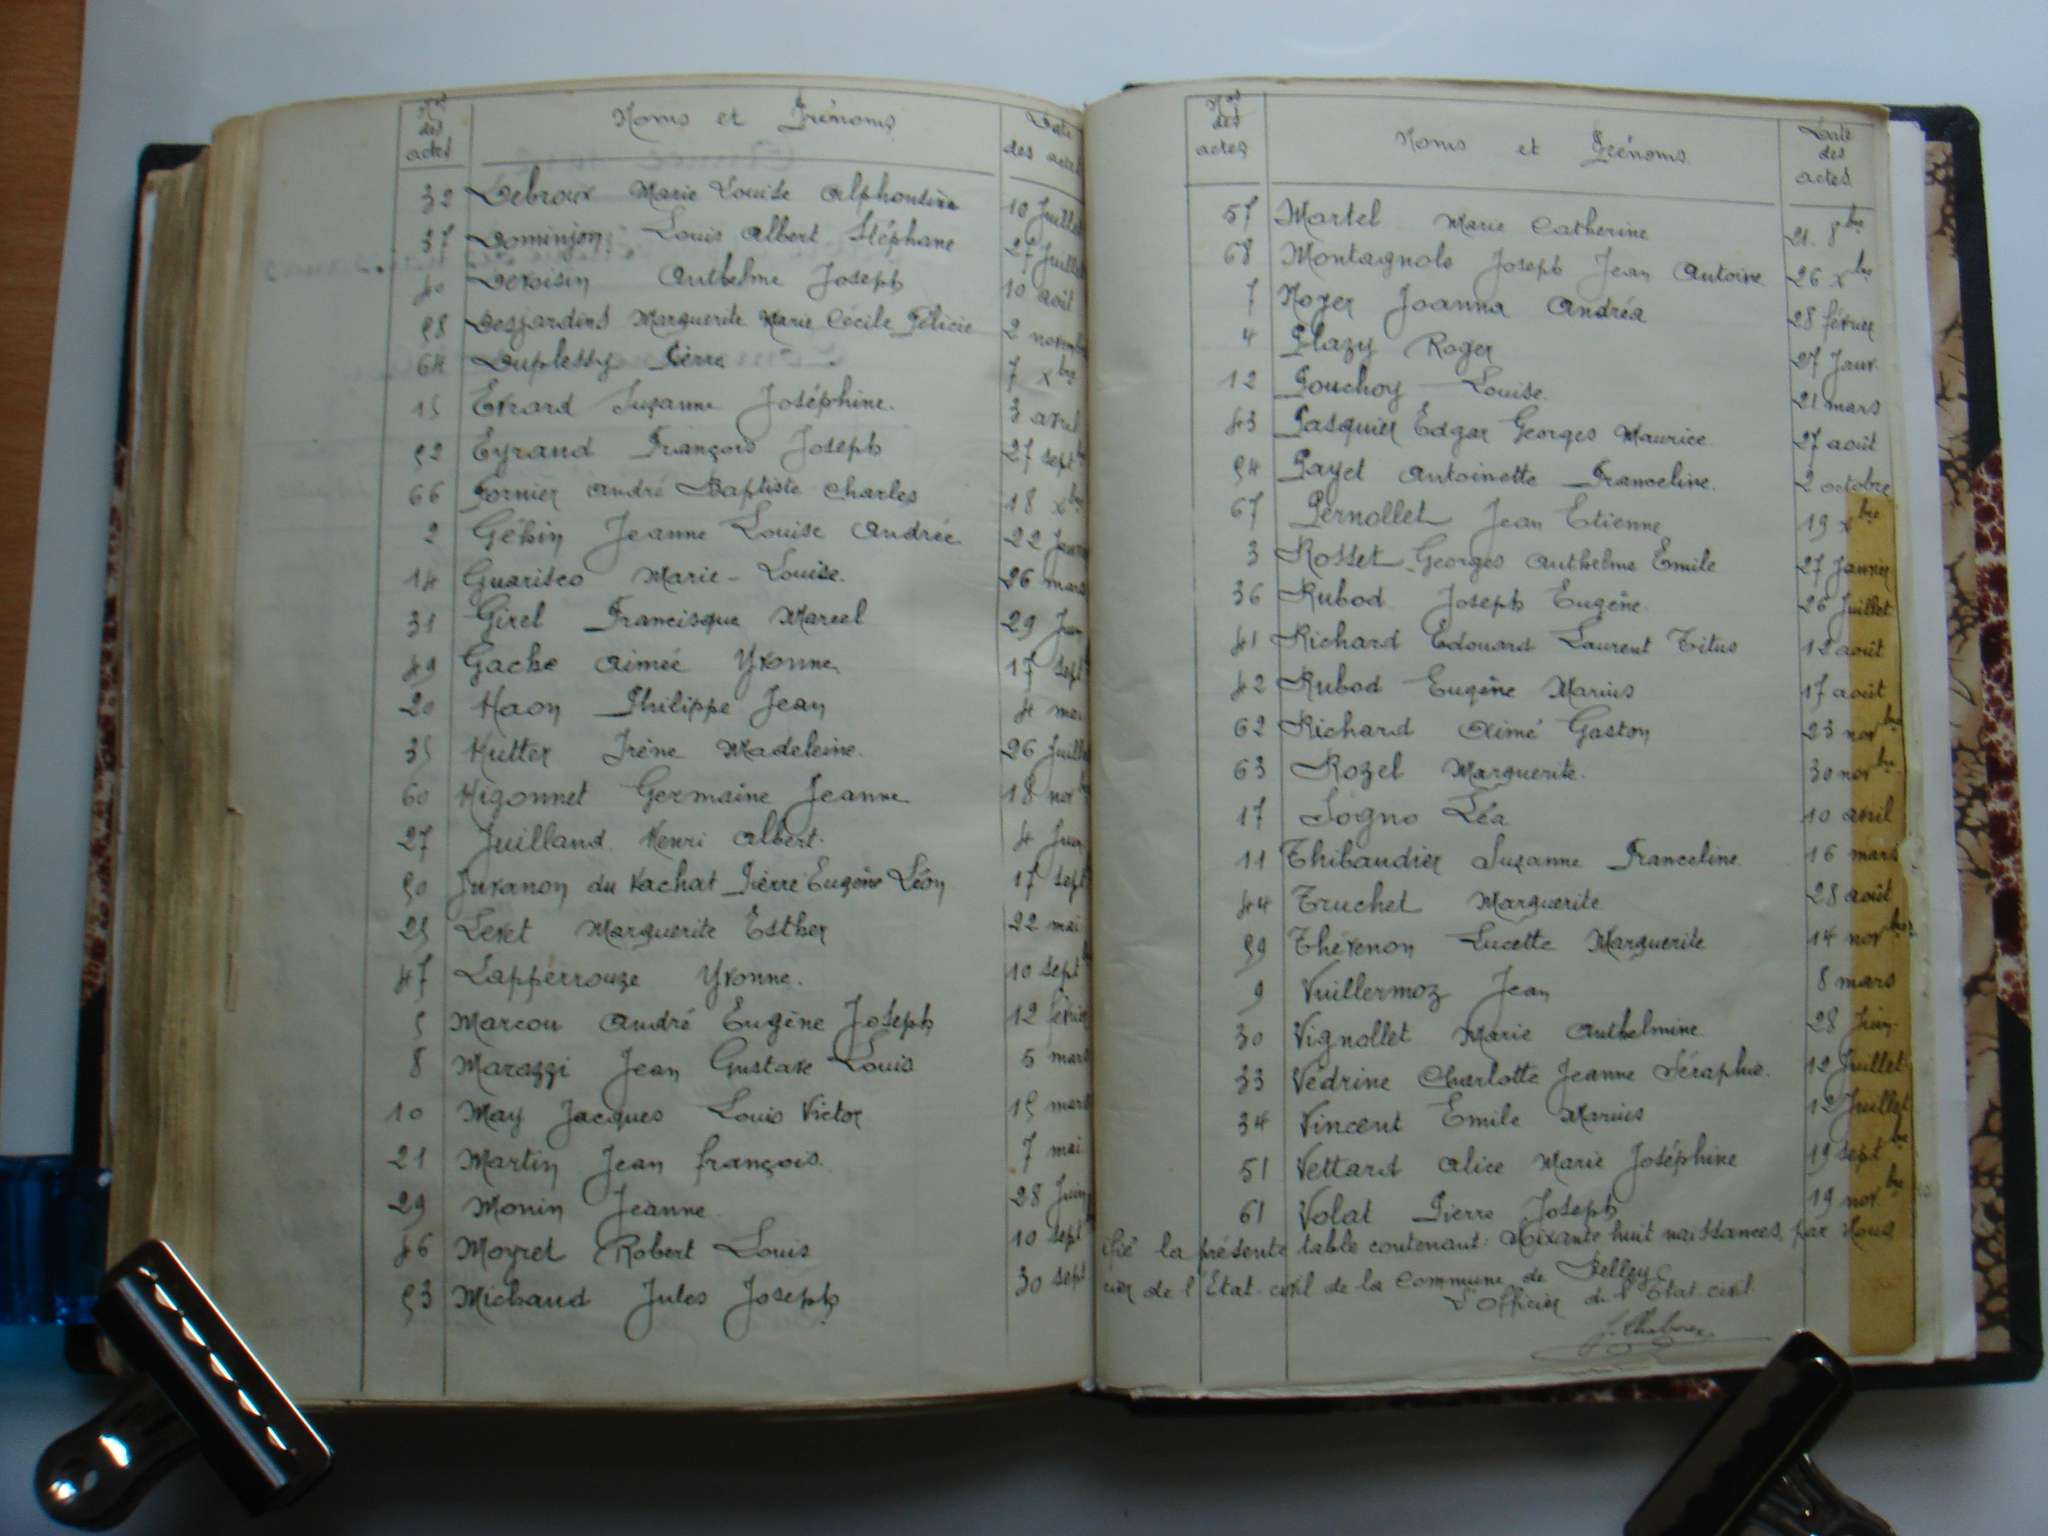 Nos des actes Noms et Prénoms Date des actes
32 Debroux Marie Louise Alphonsine 10 Juillet
37 Dominjon Louis Albert Stéphane 27 Juillet
40 Devoisin Anthelme Joseph 10 août
58 Desjardins Marguerite Marie Cécile Félicie 2 novem
64 Duplessy Pierre 7 xbre
15 Evrard Suzanne Joséphine. 3 avril
52 Eyraud François Joseph 27 sept
66 Fornier André Baptiste Charles 18 xbre
2 Géhin Jeanne Louise Andrée 22 Janv
14 Guarisco Marie-Louise. 26 mars
31 Girel Francisque Marcel 29 Juin
49 Gache Aimée Yvonne 17 sept
20 Haon Philippe Jean 4 mai
35 Hutter Irène Madeleine. 26 Juille
60 Higonnet Germaine Jeanne 18 nov
27 Juilland Henri Albert. 4 Juin
50 Juvanon du Vachat Pierre Eugène Léon 17 sept
25 Levet Marguerite Esther 22 mai
47 Lapperrouze Yvonne. 10 sept
5 Marcou André Eugène Joseph 12 févrie
8 Marazzi Jean Gustave Louis 5 mars
10 May Jacques Louis Victor 15 mars
21 Martin Jean françois. 7 mai
29 Monin Jeanne 28 Juin
46 Moyret Robert Louis 10 sept
53 Michaud Jules Joseph 30 sept
Nos des actes Noms et Prénoms. Date des actes.
57 Martel Marie Catherine 21. 8bre
68 Montagnole Joseph Jean Antoine 26 xbre
7 Noyer Joanna Andréa 28 février
4 Plazy Roger 27 Janv.
12 Pouchoy Louise. 21 mars
43 Pasquier Edgar Georges Maurice 27 août
54 Payet Antoinette Franceline. 2 octobre
67 Pernollet Jean Etienne 19 xbre
3 Rosset Georges Anthelme Emile 27 Janvier
36 Rubod Joseph Eugène 26 Juillet
41 Richard Edouard Laurent Titus 12 août
42 Rubod Eugène Marius 17 août
62 Richard Aimé Gaston 23 novbre
63 Rozel Marguerite. 30 novbre
17 Sogno Léa 10 avril
11 Thibaudier Suzanne Franceline 16 mars
44 Truchet Marguerite 28 août
59 Thévenon Lucette Marguerite 14 novbre
9 Vuillermoz Jean 8 mars
30 Vignollet Marie Anthelmine 28 Juin
33 Védrine Charlotte Jeanne Séraphie. 12 Juillet
34 Vincent Emile Marius 12 Juillet
51 Vettard Alice Marie Joséphine 19 septbre
61 Volat Pierre Joseph 19 novbre
la présente table contenant: soixante huit naissances, par Nous
cier de l'Etat-civil de la Commune de Belley.
L'officier de l'Etat civil